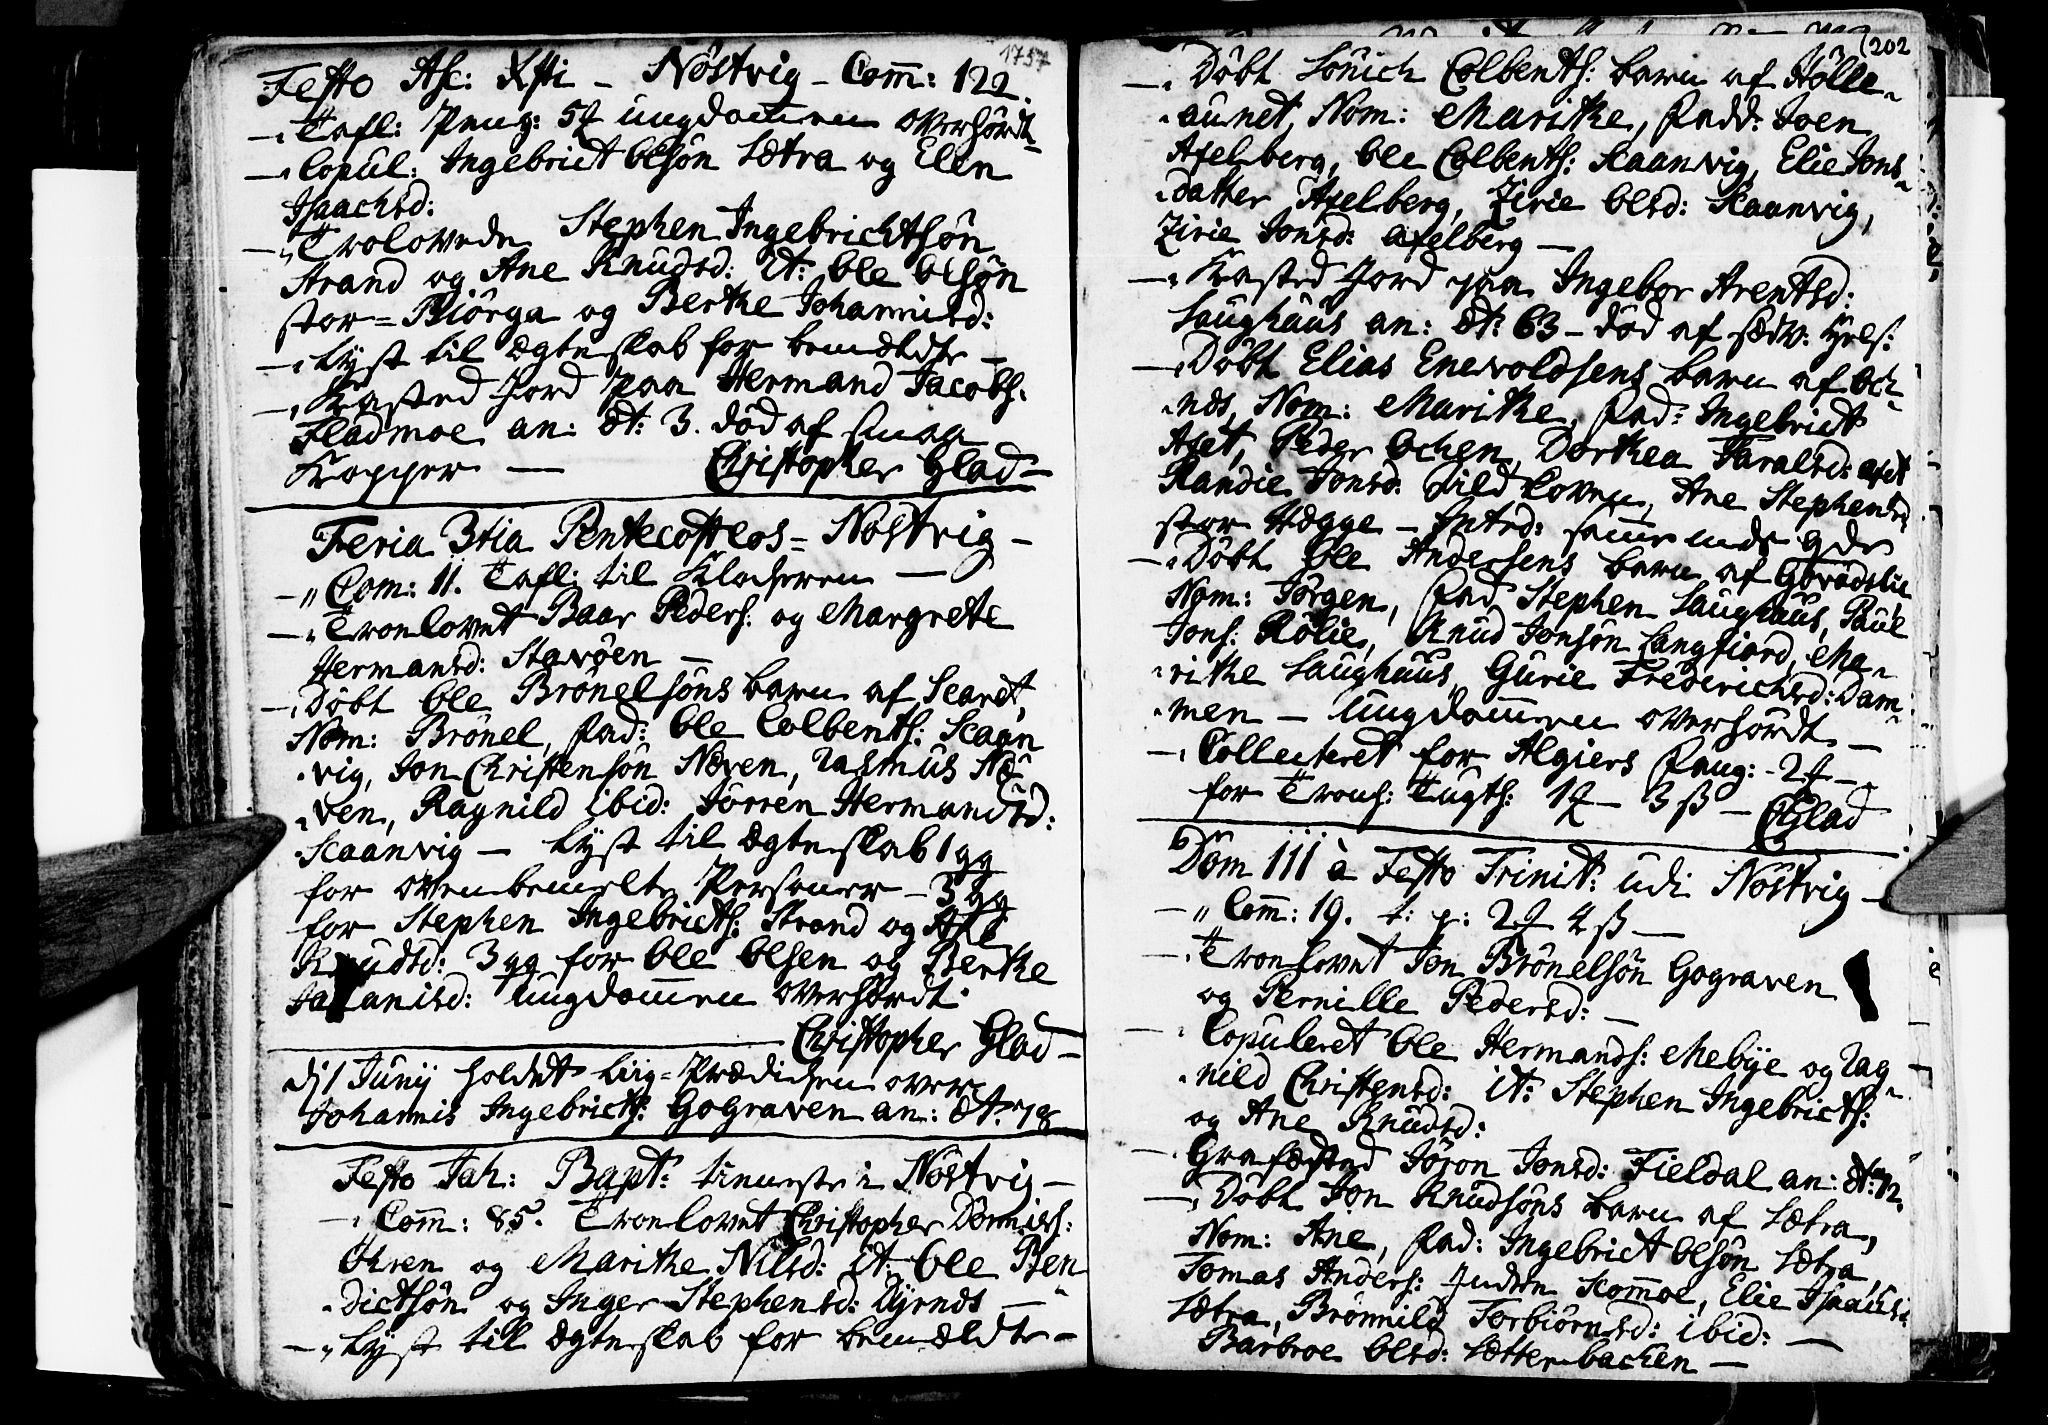 1757
Festo Asc: Xsti – Nöstvig – Com̄: 122.
–„ Tafl: Peng: 5 ungdommen overhördt
–„ Copul: Ingebrict Olsön Sætra og Elen
Isaachsd:
–„ Trolovede Stephen Ingebrichtsön
Strand og Ane Knudsd: it: Ole Olsön
stor=Biörga og Berthe Johannisd:
–„ Lyst til Ægteskab for bemældte –
–„ Kasted Jord paa Hermand Jacobs:
Fladmoe an: æt: 3. död af smaa
Kopper — Christopher Glad–
Feria 3tia Pentecosteos = Nöstvig –
–„ Com: 11. Tafl: til Klocheren —
–„ Troelovet Baar Peders: og Margrete
Hermansd: Stavöen –
–„ Döbt Ole Brönelsöns barn af Scaret,
Nom: Brönel, fad: Ole Colbents: Scaan
„vig, Jon Christensön Næven, Rasmus Næ
„ven, Ragnild ibid: Jörren Hermandsd:
Scaanvig – Lyst til Ægteskab 1 gg
for ovenbemelte Personer – 3 gg
for Stephen Ingebricts: Strand og Ane
Knudsd: 3 gg for Ole Olsen og Berthe
Johanisd: Ungdommen overhördt.
Christopher Glad–
d/1 Junij holdet Liig=Prædichen over
Johannis Ingebricts: Gograven an: æt: 78
Festo Joh: Bapt: tieneste i Nöstvig –
–„ Com̄: 85. Troelovet Christopher Dönnies:
Ohren og Marithe Nilsd: it: Ole Ben
„dictsön og Inger Stephensd: Dyrnes —
–„ Lyst till Ægteskab for bemældte –
(202
–„ Döbt Sönich Colbents: barn af Hölle„
„aunet, Nom: Marithe, Fadd: Joen
Axelberg, Ole Colbents: Scaanvig, Elie Jons„
„datter Axelberg, Zirie Olsd: Scaanvig,
Zirie Jonsd: Axelberg —
–„ Kasted Jord paa Ingebor Arentsd:
Saughaus an: æt: 63 – död af sædv:
–„ Döbt Elias Enevoldsens barn af Och„
„næs, Nom: Marithe, fad: Ingebrict
Axet, Peder Ochen, Dorthea Taralsd: Axet
Randie Jonsd: Sildloven, Ane Stephensd
stor Hægge – Intrd: samme
–„ Döbt Ole Andersens barn af Gövidslie
Nom: Jörgen, fad Stephen Saughaus, Paul
Jons: Rölie, Knud Jonsön Langfiord, Ma„
„rithe Saughaus, Gurie Friderichsd: Dam„
„men – Ungdommen overhördt –
–„ Collecteret for Algiers Fang: – 2
for Trons: Tugth: 1 – 3 ß – CGlad
Dom III à Festo Trinit: udi Nöstvig –
–„ Com̄: 19. t: p: 2 4 ß —
–„ Troelovet Jon Brönelsön Gograven
og Pernille Pedersd: –
–„ Copuleret Ole Hermands: Mebÿe og Rag„
„nild Christensd: it: Stephen Ingebricts:
og Ane Knudsd:
– Grafæsted Jöron Jonsd: Fieldal an: æt: 72.
–„ Döbt Jon Knudsöns barn af Sætra,
Nom: Ane, fad: Ingebrict Olsön Sætra,
Tomas Anders: Scomoe, Elie Isaachsd
Sætra, Brönnild Torbiörnsd: ibid: –
Barbroe Olsd: Sætterbachen —